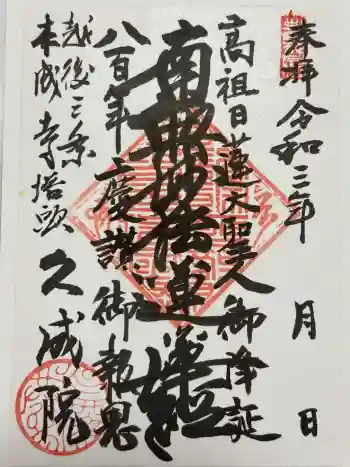 奉拝 令和三年 月 日
高祖日蓮大聖人御降誕
南無妙法蓮華経
八百年慶讃御報恩
越後三条
本成寺塔頭
久成院